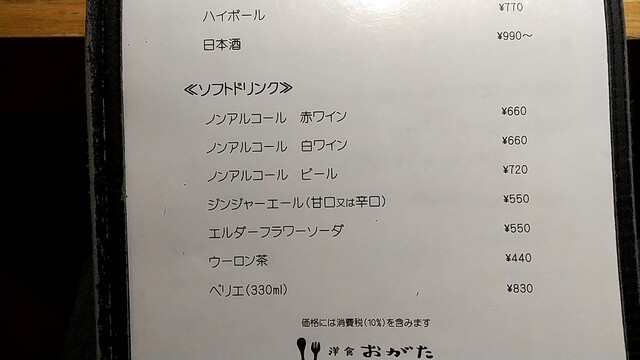 ハイボール ¥770
日本酒 ¥990～
≪ソフトドリンク≫
ノンアルコール 赤ワイン ¥660
ノンアルコール 白ワイン ¥660
ノンアルコール ビール ¥720
ジンジャーエール(甘口又は辛口) ¥550
エルダーフラワーソーダ ¥550
ウーロン茶 ¥440
ペリエ(330ml) ¥830
価格には消費税(10%)を含みます
洋食 おがた